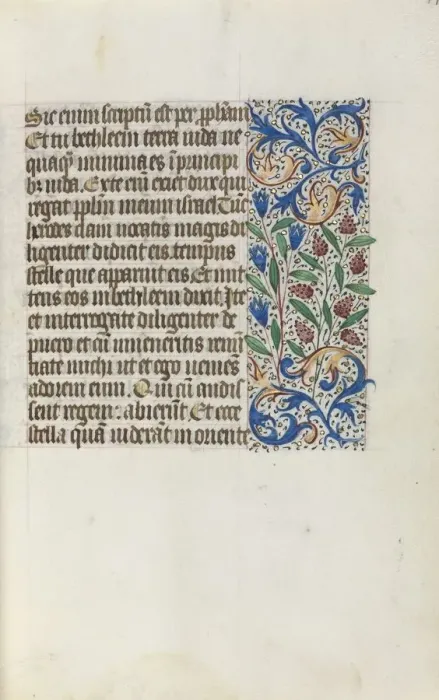 Sic enim scriptū est per ꝓphām
Et tu bethleem terra iuda ne
quaqȝ minima es ī principi
bȝ iuda. Ex te eni exiet dux qui
regat pplm meum israel. Tūc
herodes clam uocatis magis di
ligenter didicit eis tempus
stelle que apparuit eis. Et mit
tens eos in bethleem dixit. Ite
et interrogate diligenter de
puero et cū inueneritis renū
tiate michi ut et ego ueniēs
adorem eum. Qui cū audis
sent regem: abierūt. Et ecce
stella quā uiderāt in oriente